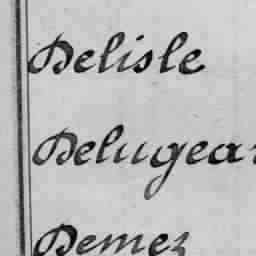 Delisle
Delugear
Demez